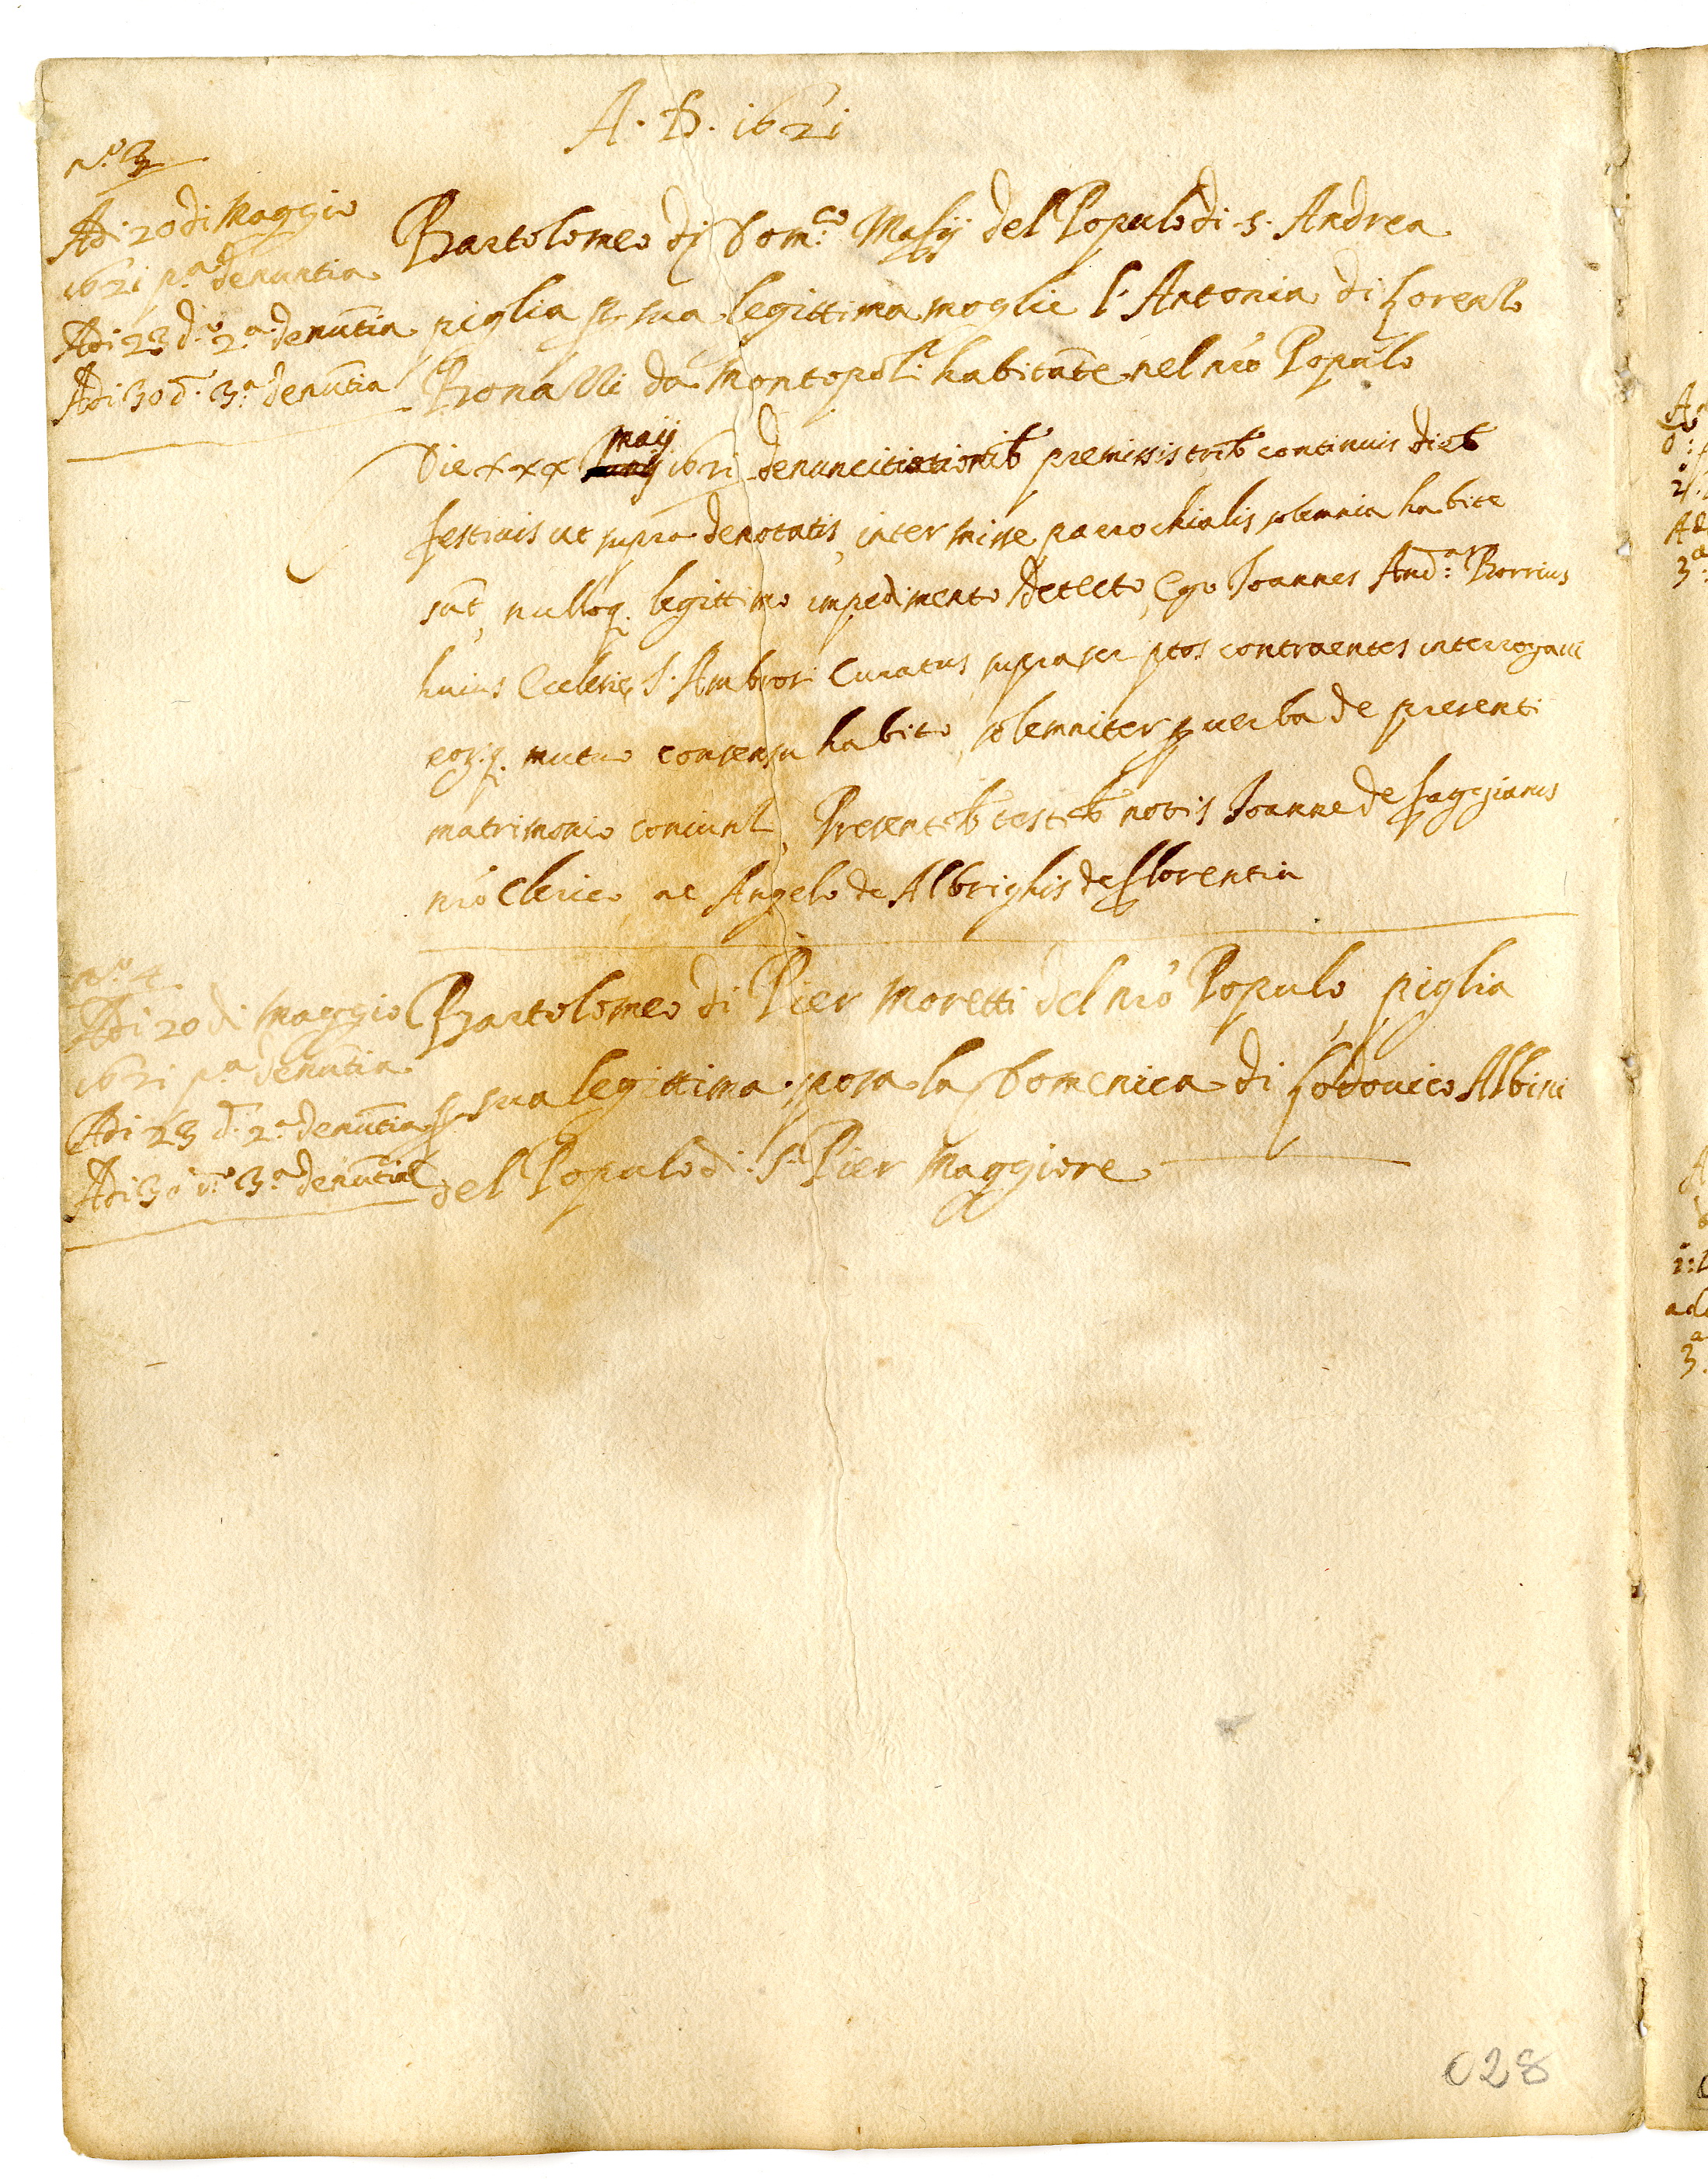 A. D. 1621
N.o 3
Adi 20 di Maggio
1621 p.a denuntia
Adi 23 d.o 2.a denūtia
Adi 30 d. 3.a denūtia
Bartolomeo di Dom.co Masij del Populo di S. Andrea
piglia p sua legittima moglie l'Antonia di Lorenzo
Bonalli da Montopoli habitāte nel nrō Populo
Die xxx maij 1621 denuncitiationib premissis trib continuis dieb
festivis ut supra denotatis, inter misse parrochialis solemnia habite
sūt, nulloq. legittimo impedimento detecto, Ego Joannes And.a Borrius
huius Ecclesie S. Ambrosi Curatus suprascriptos contraentes interrogavi
eorq. mutuo consensu habito, solemniter p verba de presenti
matrimonio coniunxi, Presentib testib notis Joanne de faggianis
nrō Clerico, ac Angelo de Albrighis de Florentia
N.o 4
Adi 20 di Maggio
1621 p.a denūtia
Adi 23 d. 2.a denūtia
Adi 30 d.o 3.a denūtia
Bartolomeo di Pier Moretti del nrō Populo, piglia
p sua legittima sposa la Domenica di Lodovico Albini
del Populo di S. Pier Maggiore
028